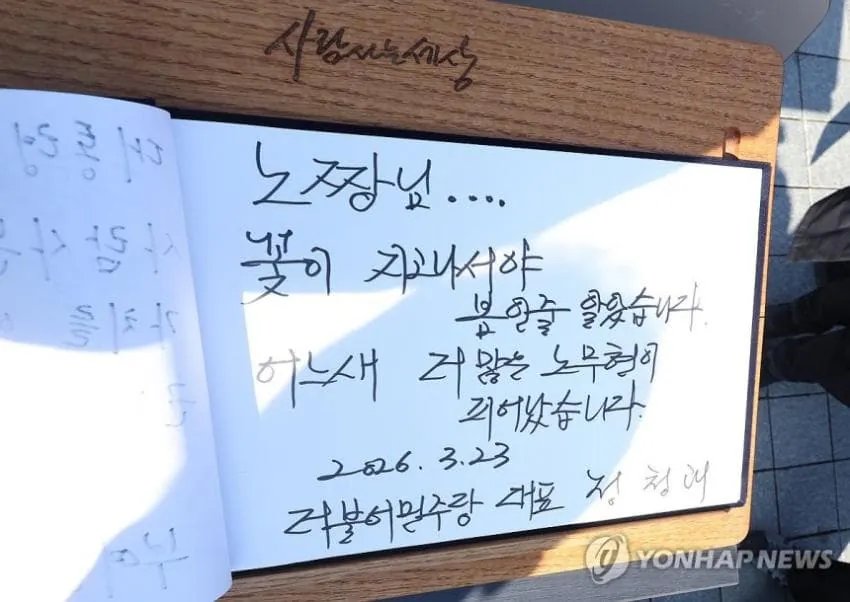 사람사는세상
노짱님....
꽃이 지고나서야
봄인줄 알았습니다.
어느새 더 많은 노무현이
피어났습니다.
2026. 3.23
더불어민주당 대표 정청래
YONHAP NEWS